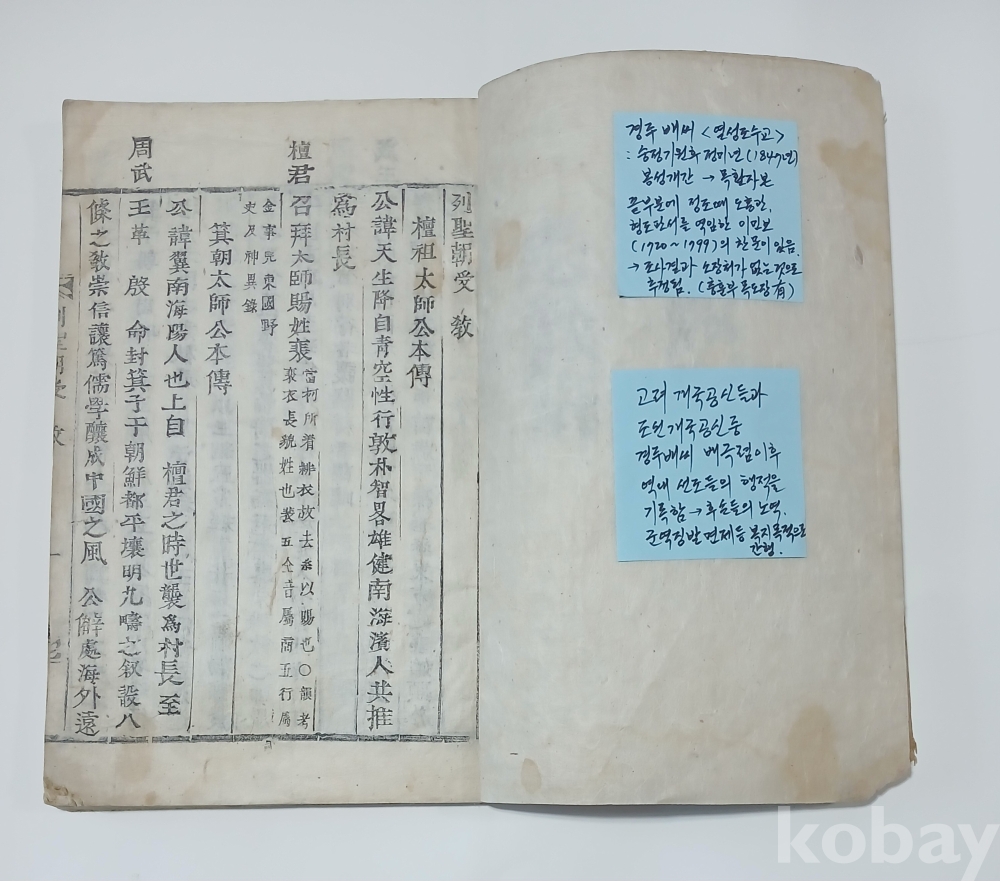 경주 배씨 <열성조수교>
: 숭정기원후 정미년 (1847년)
봉성개간 → 목활자본
끝부분에 정조때 오흥한,
형조판서를 역임한 이민보
(1720~1799)의 찬문이 있음.
→ 조사결과 소장처가 없는것으로
추정됨. (홍훈부 목도장 有)
고려 개국공신들과
조선개국공신중
경주배씨 배극렴이후
역대 선조들의 행적을
기록함 → 후손들의 노역.
군역징발 면제등 복지목적으로
간행.
列聖朝受 敎
檀祖太師公本傳
公諱天生降自靑空性行敦朴智畧雄健南海濱人共推
爲村長
檀君召拜太師賜姓裵
當柯所着緋衣故去糸以賜也○韻考
裵衣長皃姓也
五行屬
金事見東國野
史及神異錄
箕朝太師公本傳
公諱翼南海陽人也上自 檀君之時世襲爲村長至
周武王革 殷 命封箕子于朝鮮都平壤明九疇之叙設八
條之敎崇信讓篤儒學釀成中國之風 公解處海外遠
kobay